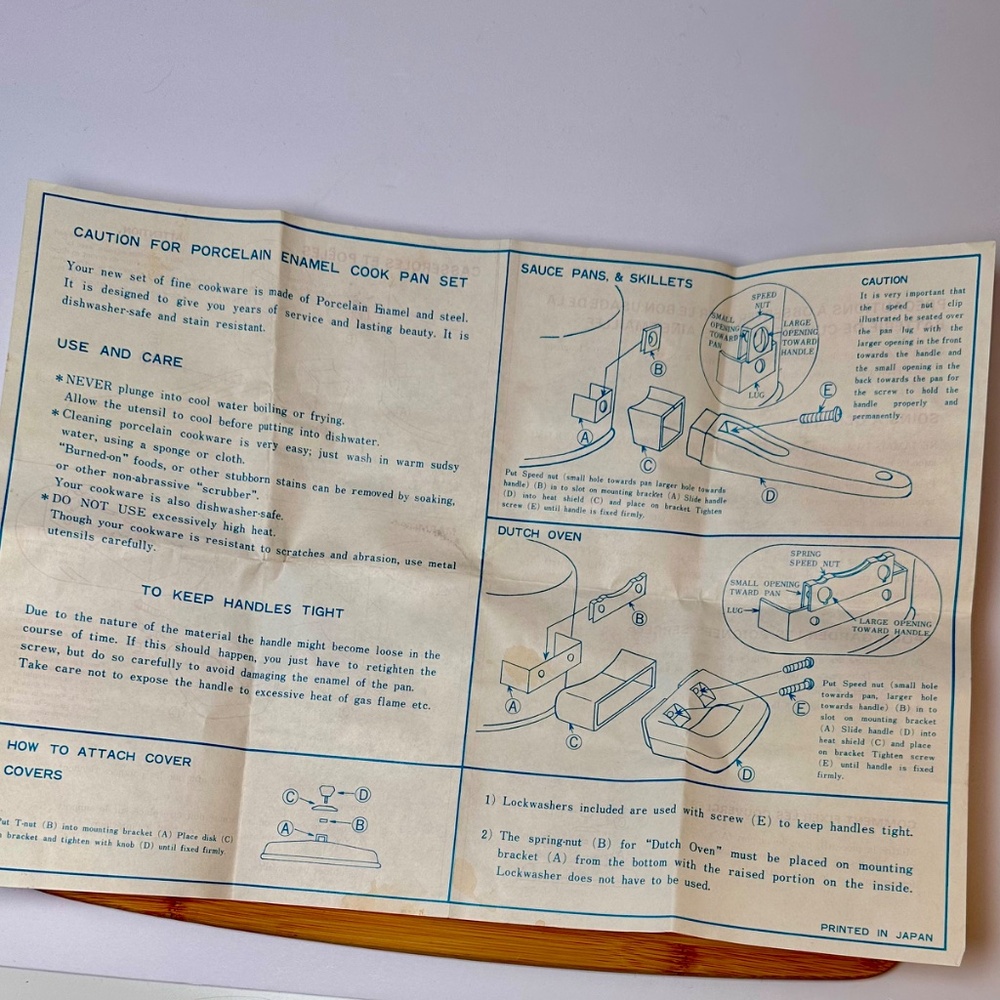 CAUTION FOR PORCELAIN ENAMEL COOK PAN SET
Your new set of fine cookware is made of Porcelain Enamel and steel.
It is designed to give you years of service and lasting beauty. It is
dishwasher-safe and stain resistant.
USE AND CARE
*NEVER plunge into cool water boiling or frying.
Allow the utensil to cool before putting into dishwater.
*Cleaning porcelain cookware is very easy; just wash in warm sudsy
water, using a sponge or cloth.
"Burned-on" foods, or other stubborn stains can be removed by soaking,
or other non-abrassive "scrubber".
Your cookware is also dishwasher-safe.
*DO NOT USE excessively high heat.
Though your cookware is resistant to scratches and abrasion, use metal
utensils carefully.
TO KEEP HANDLES TIGHT
Due to the nature of the material the handle might become loose in the
course of time. If this should happen, you just have to retighten the
screw, but do so carefully to avoid damaging the enamel of the pan.
Take care not to expose the handle to excessive heat of gas flame etc.
HOW TO ATTACH COVER
COVERS
Put T-nut (B) into mounting bracket (A) Place disk (C)
bracket and tighten with knob (D) until fixed firmly.
C
D
B
A
SAUCE PANS, & SKILLETS
SPEED
NUT
SMALL
OPENING
TOWARD
PAN
LARGE
OPENING
TOWARD
HANDLE
LUG
B
A
C
E
D
CAUTION
It is very important that
the speed nut clip
illustrated be seated over
the pan lug with the
larger opening in the front
towards the handle and
the small opening in the
back towards the pan for
the screw to hold the
handle properly and
permanently.
Put Speed nut (small hole towards pan larger hole towards
handle) (B) in to slot on mounting bracket (A) Slide handle
(D) into heat shield (C) and place on bracket Tighten
screw (E) until handle is fixed firmly.
DUTCH OVEN
SPRING
SPEED NUT
SMALL OPENING
TWARD PAN
LUG
LARGE OPENING
TOWARD HANDLE
B
A
C
E
D
Put Speed nut (small hole
towards pan, larger hole
towards handle) (B) in to
slot on mounting bracket
(A) Slide handle (D) into
heat shield (C) and place
on bracket Tighten screw
(E) until handle is fixed
firmly.
1) Lockwashers included are used with screw (E) to keep handles tight.
2) The spring-nut (B) for "Dutch Oven" must be placed on mounting
bracket (A) from the bottom with the raised portion on the inside.
Lockwasher does not have to be used.
PRINTED IN JAPAN